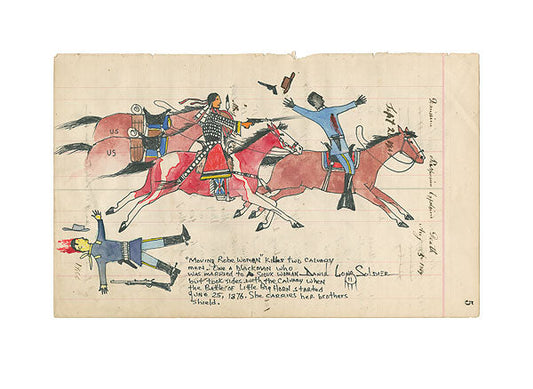 US
US
Sept 2
"Moving Robe Woman" Kills two Calvary
men. One a blackman who
was married to a Sioux Woman David Long Soldier
but took sides with the Calvary when
the Battle of Little Big Horn started
June 25, 1876. She carries her brothers
shield.
5